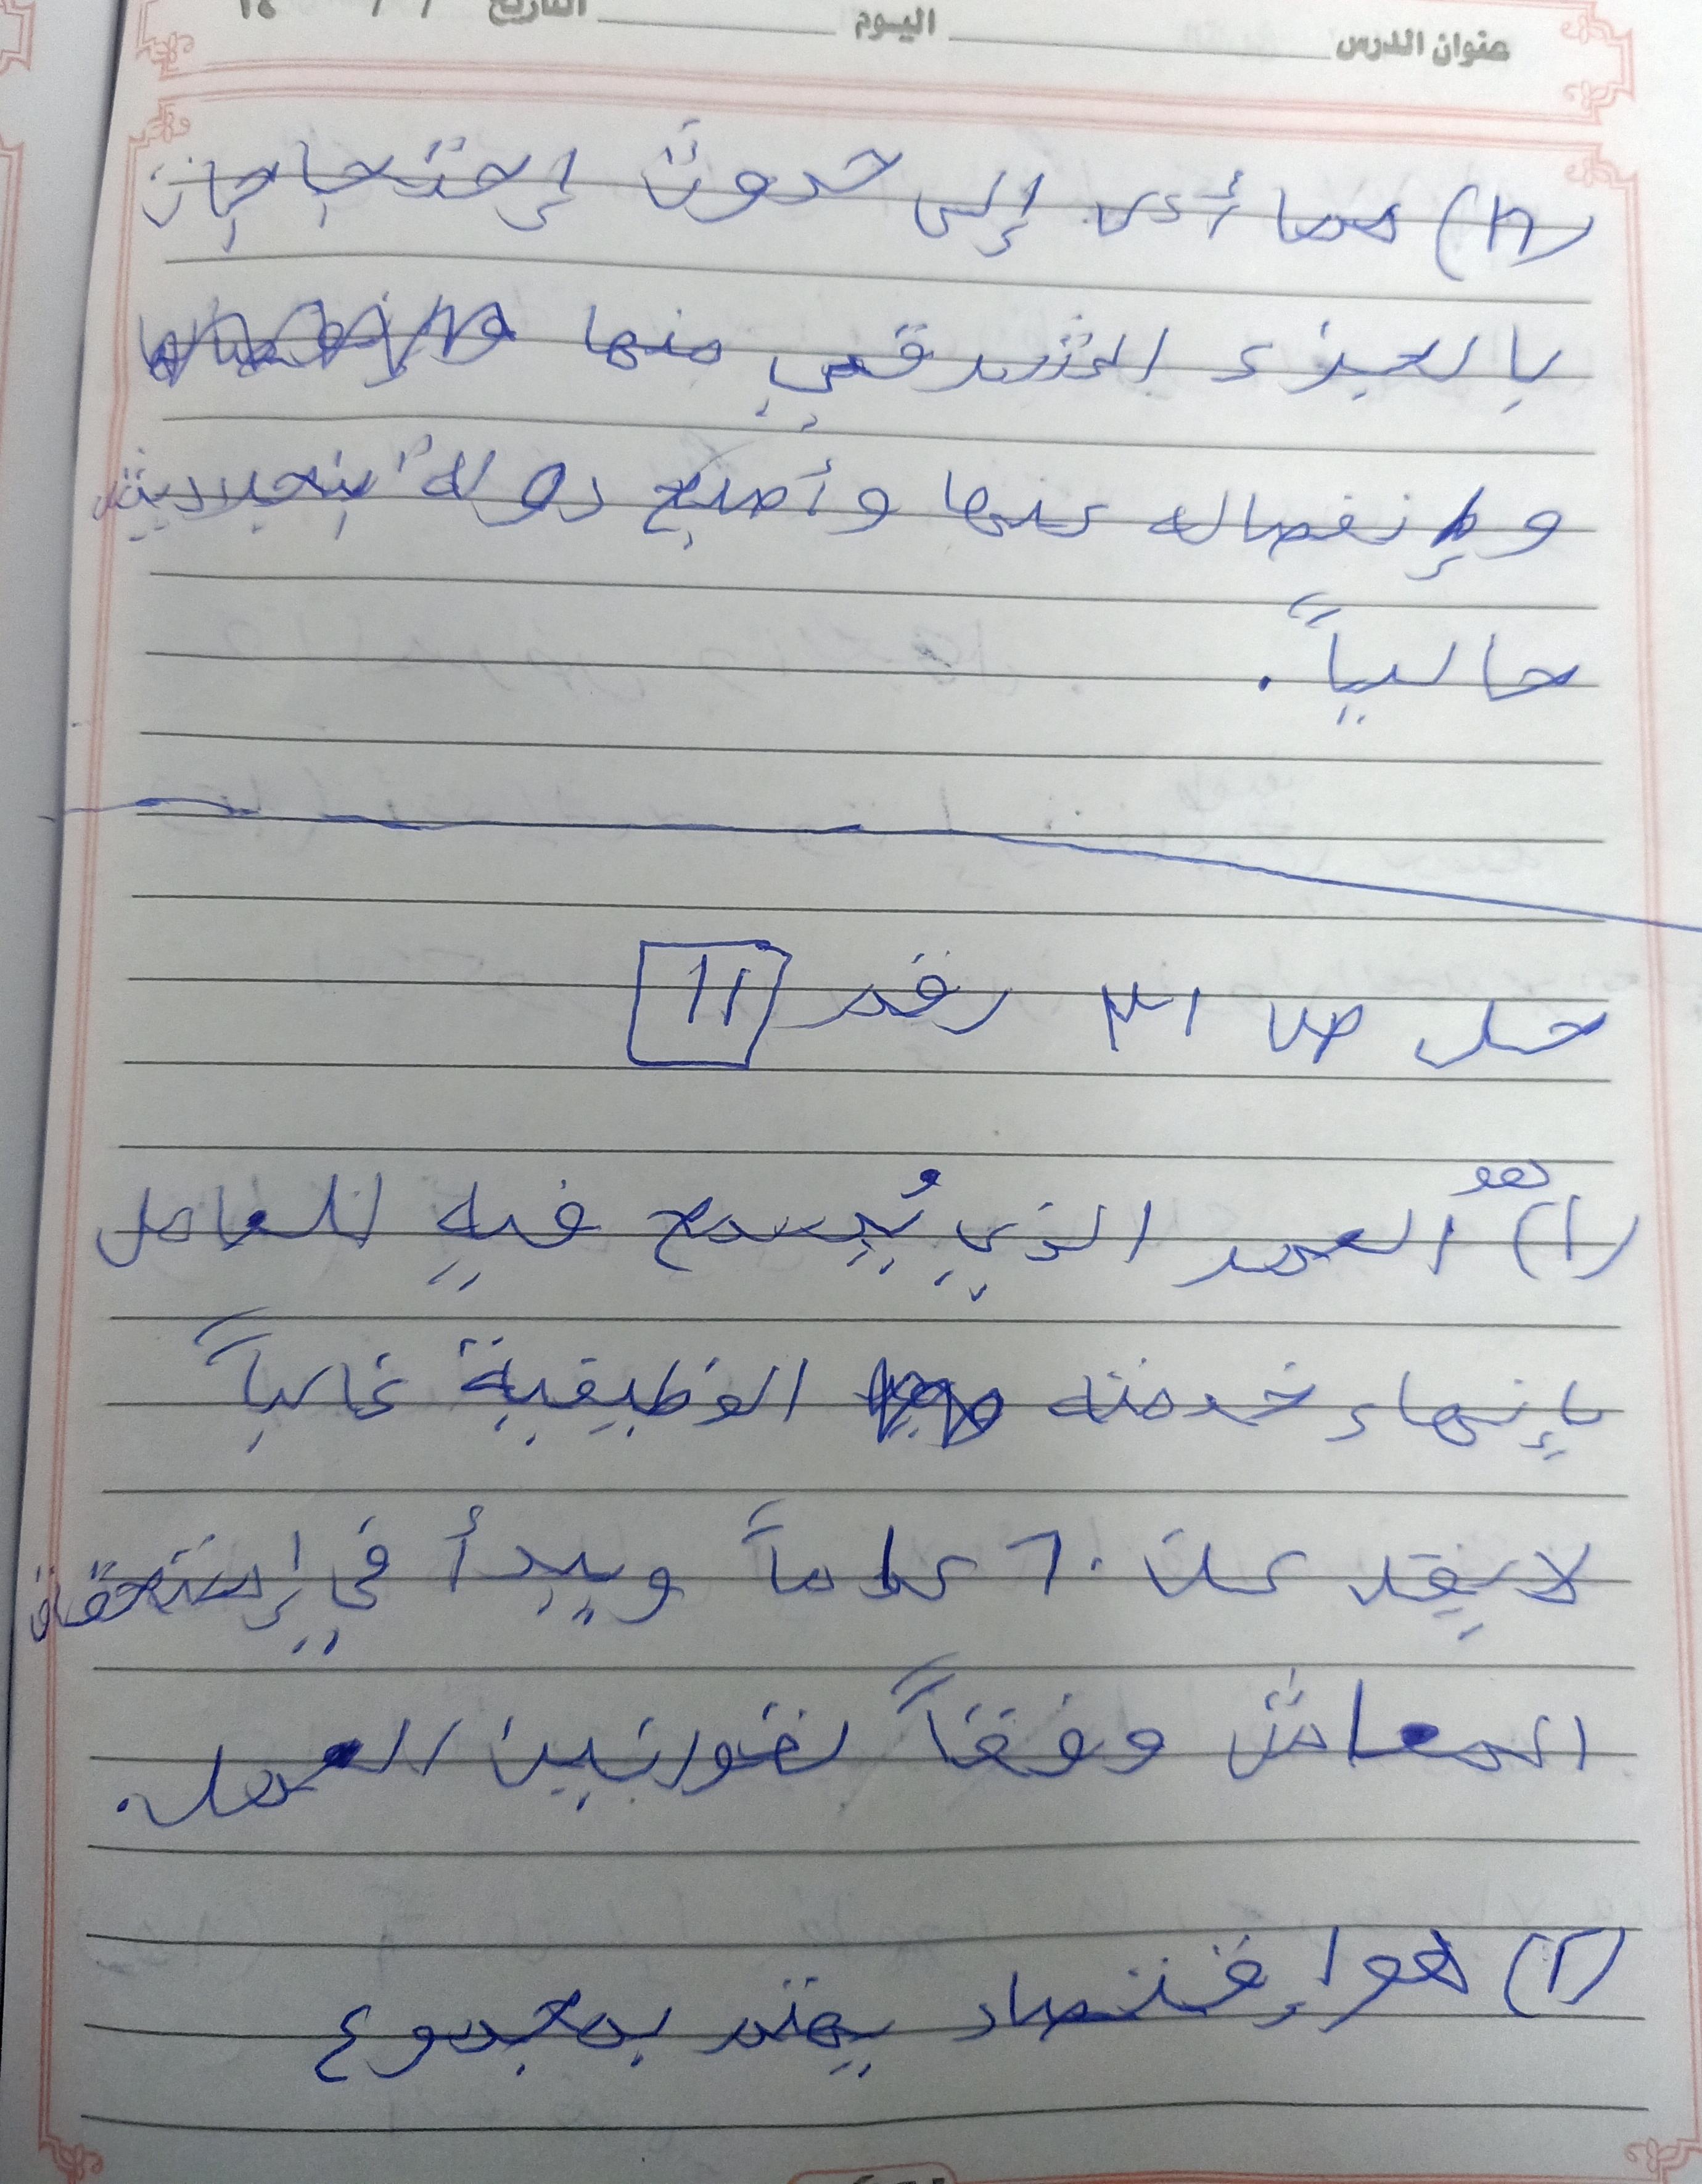 عنوان الدرس اليوم التاريخ / / ١٤
(٨) مما أدى إلى حدوث إحتجاجات
بالجزء الشرقي منها
وإنفصاله عنها وأصبح دولة بنجلاديش
حالياً.
حل ص ٣١ رقم ١١
(١) هو العمر الذي يُسمح فيه للعامل
بإنهاء خدمته الوظيفية غالباً
لا يقد عن ٦٠ عاماً ويبدأ في إستحقاق
المعاش وفقاً لقوانين العمل.
(٢) هو إقتصاد يهتم بمجموع